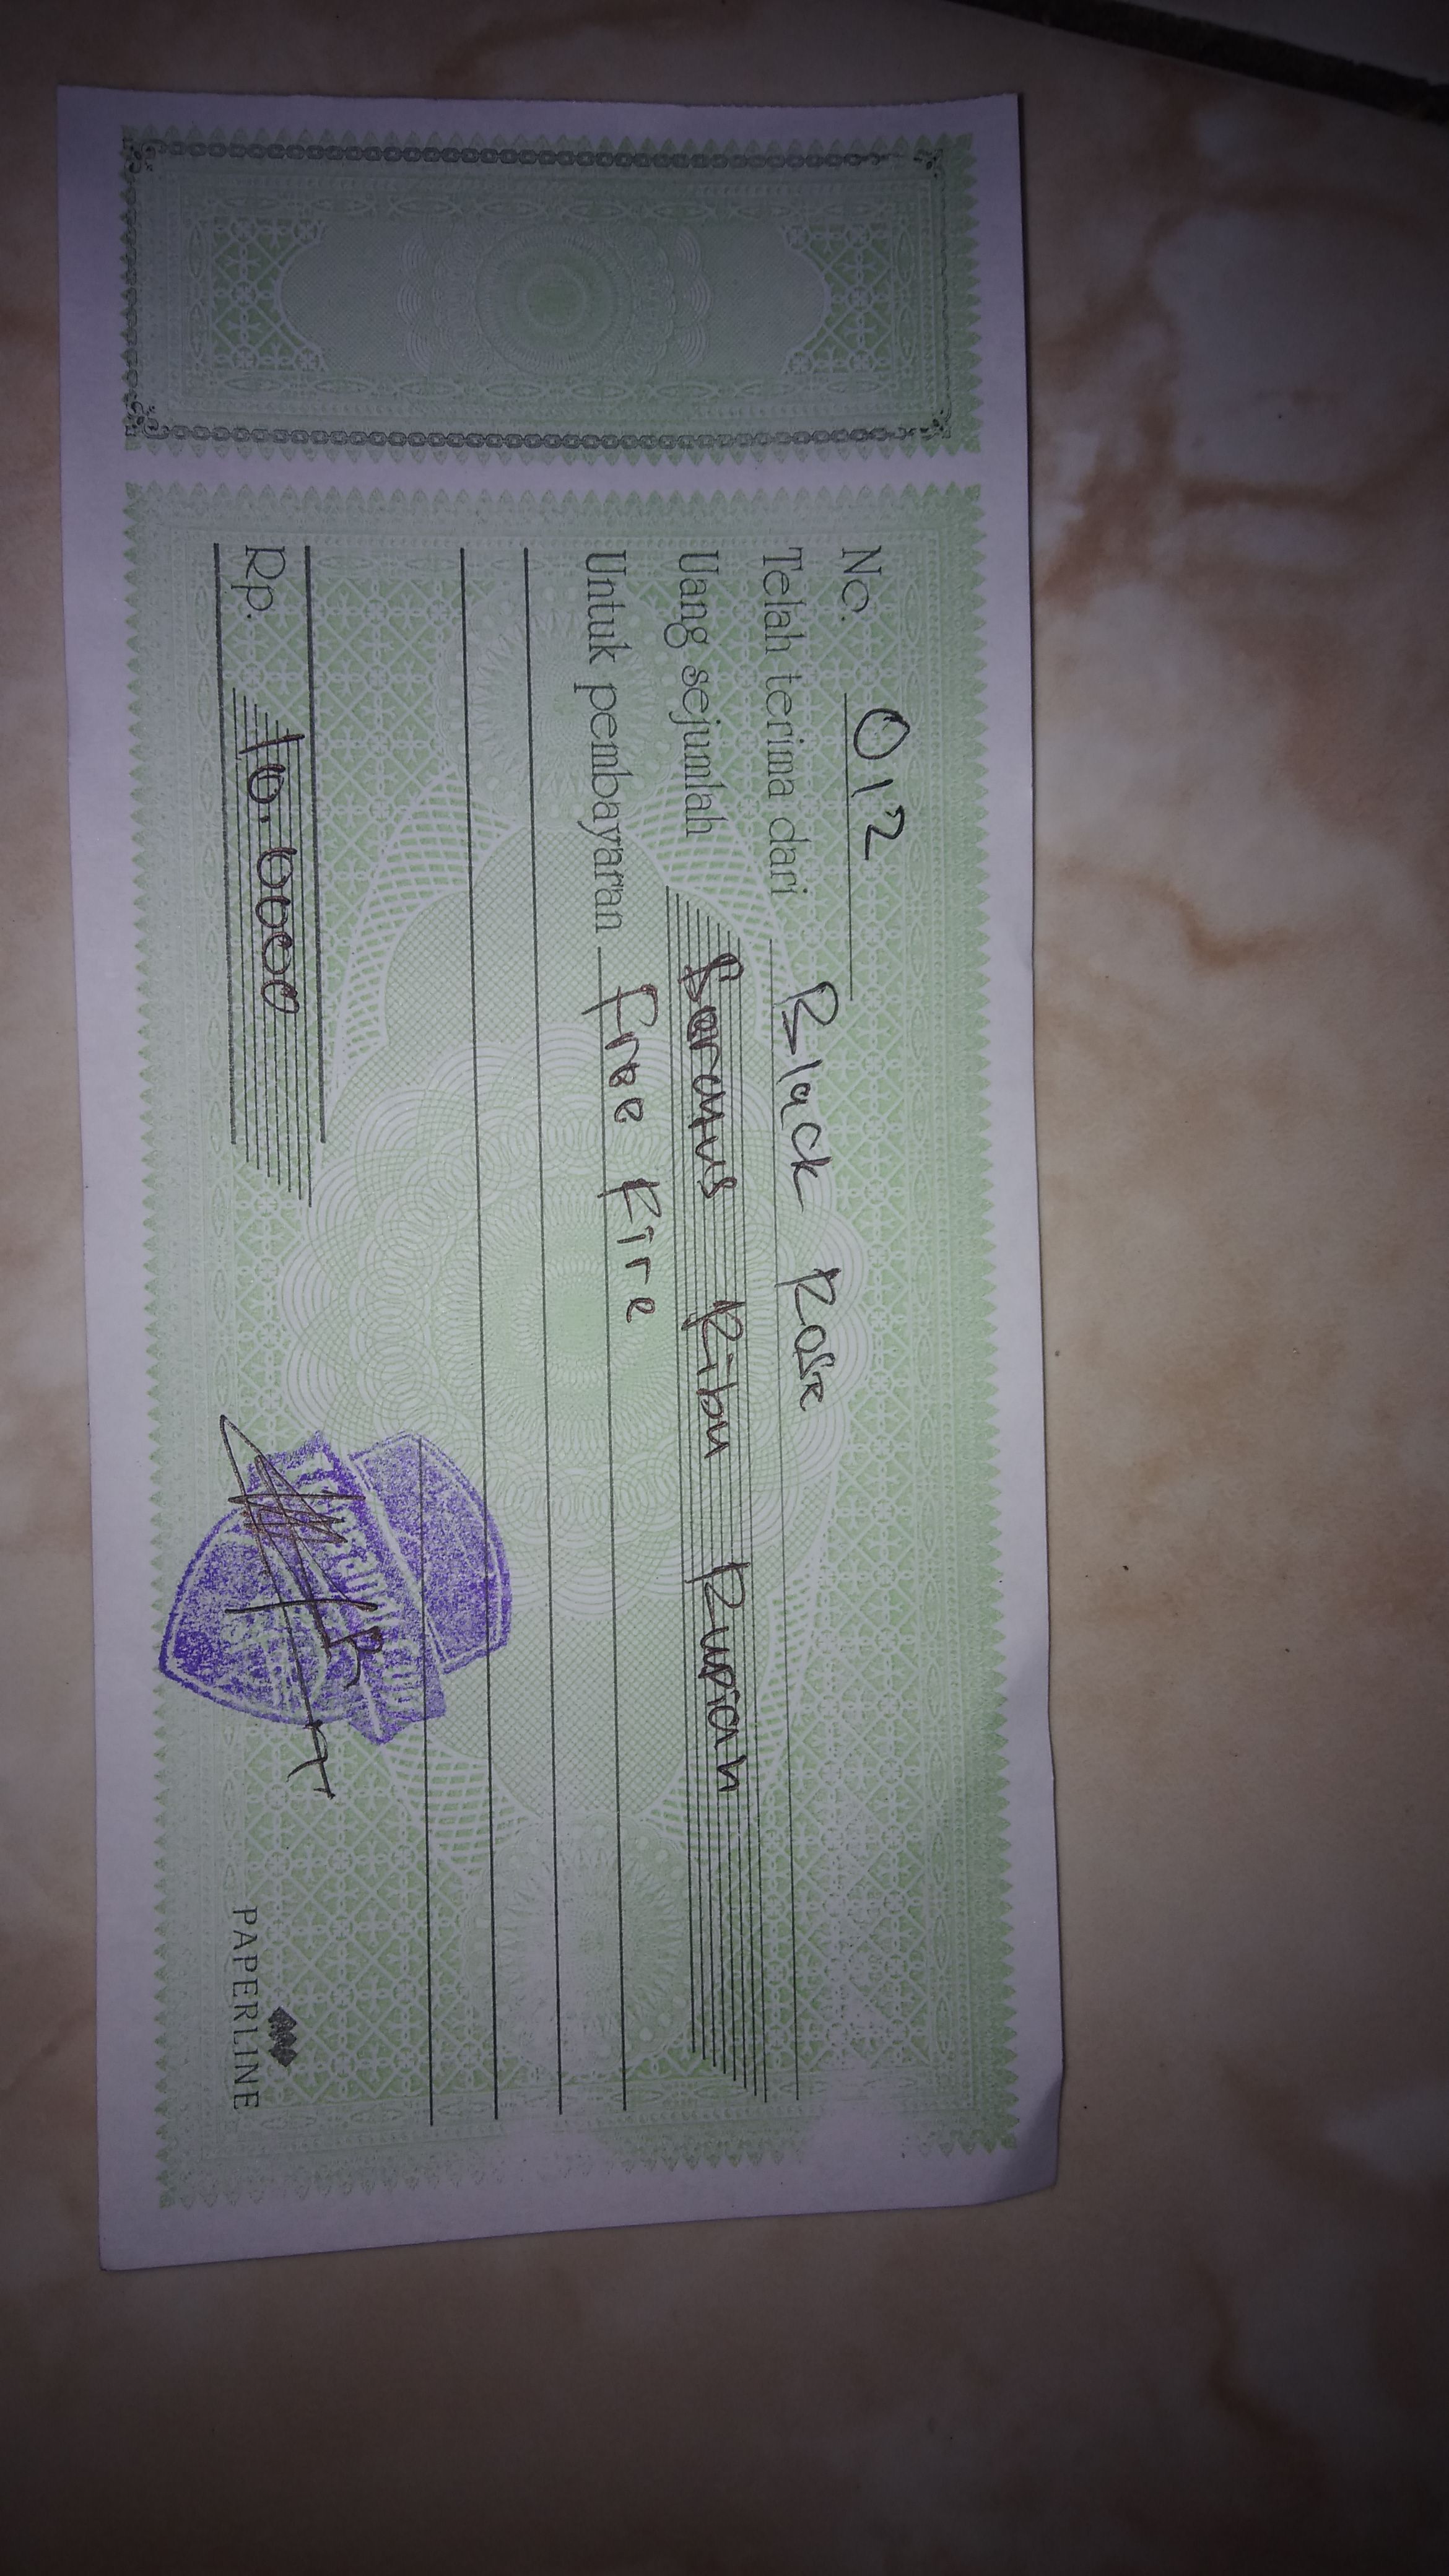 No. 012
Telah terima dari Black Rose
Uang sejumlah Seratus Ribu Rupiah
Untuk pembayaran Free Fire
Rp. 10.0000
PAPERLINE